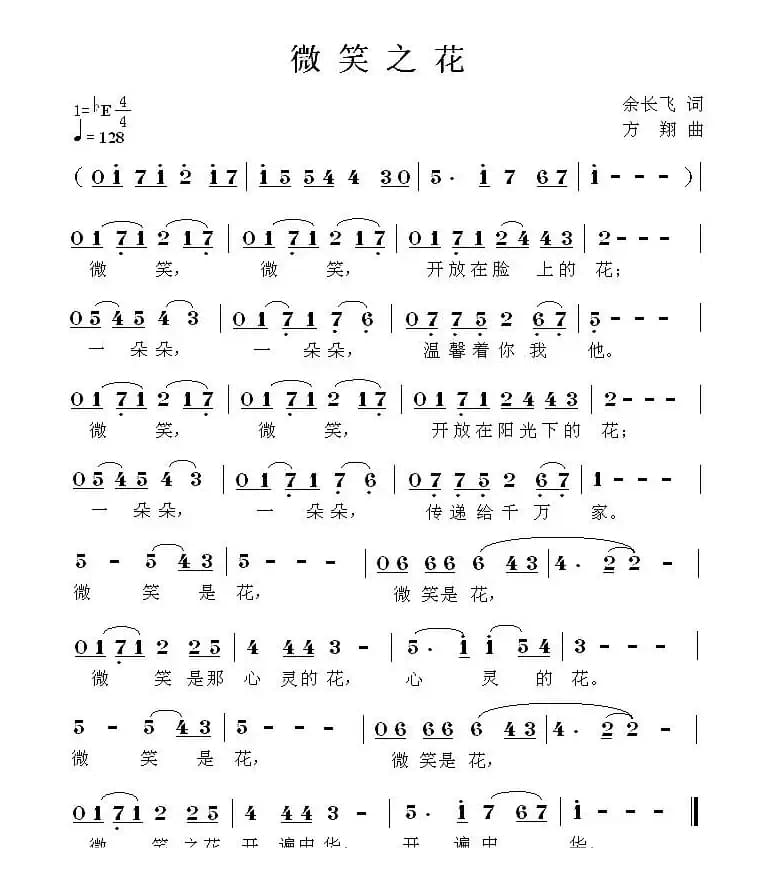 微笑之花
1=♭E 4/4
♩=128
余长飞 词
方 翔 曲
( 0 i 7 i 2 i 7 | i 5 5 4 4 3 0 | 5 · i 7 6 7 | i - - - ) |
0 1 7 1 2 1 7 | 0 1 7 1 2 1 7 | 0 1 7 1 2 4 4 3 | 2 - - - |
微 笑， 微 笑， 开放在脸 上的 花；
0 5 4 5 4 3 | 0 1 7 1 7 6 | 0 7 7 5 2 6 7 | 5 - - - |
一 朵朵， 一 朵朵， 温馨着你我 他。
0 1 7 1 2 1 7 | 0 1 7 1 2 1 7 | 0 1 7 1 2 4 4 3 | 2 - - - |
微 笑， 微 笑， 开放在阳光下的 花；
0 5 4 5 4 3 | 0 1 7 1 7 6 | 0 7 7 5 2 6 7 | 1 - - - |
一 朵朵， 一 朵朵， 传递给千万 家。
5 - 5 4 3 | 5 - - - | 0 6 6 6 6 4 3 | 4 · 2 2 - |
微 笑 是 花， 微 笑是 花，
0 1 7 1 2 2 5 | 4 4 4 3 - | 5 · i i 5 4 | 3 - - - |
微 笑 是那 心 灵的 花， 心 灵 的 花。
5 - 5 4 3 | 5 - - - | 0 6 6 6 6 4 3 | 4 · 2 2 - |
微 笑 是 花， 微 笑是 花，
0 1 7 1 2 2 5 | 4 4 4 3 - | 5 · i 7 6 7 | i - - - ‖
微 笑 之花 开 遍中 华， 开 遍 中 华。